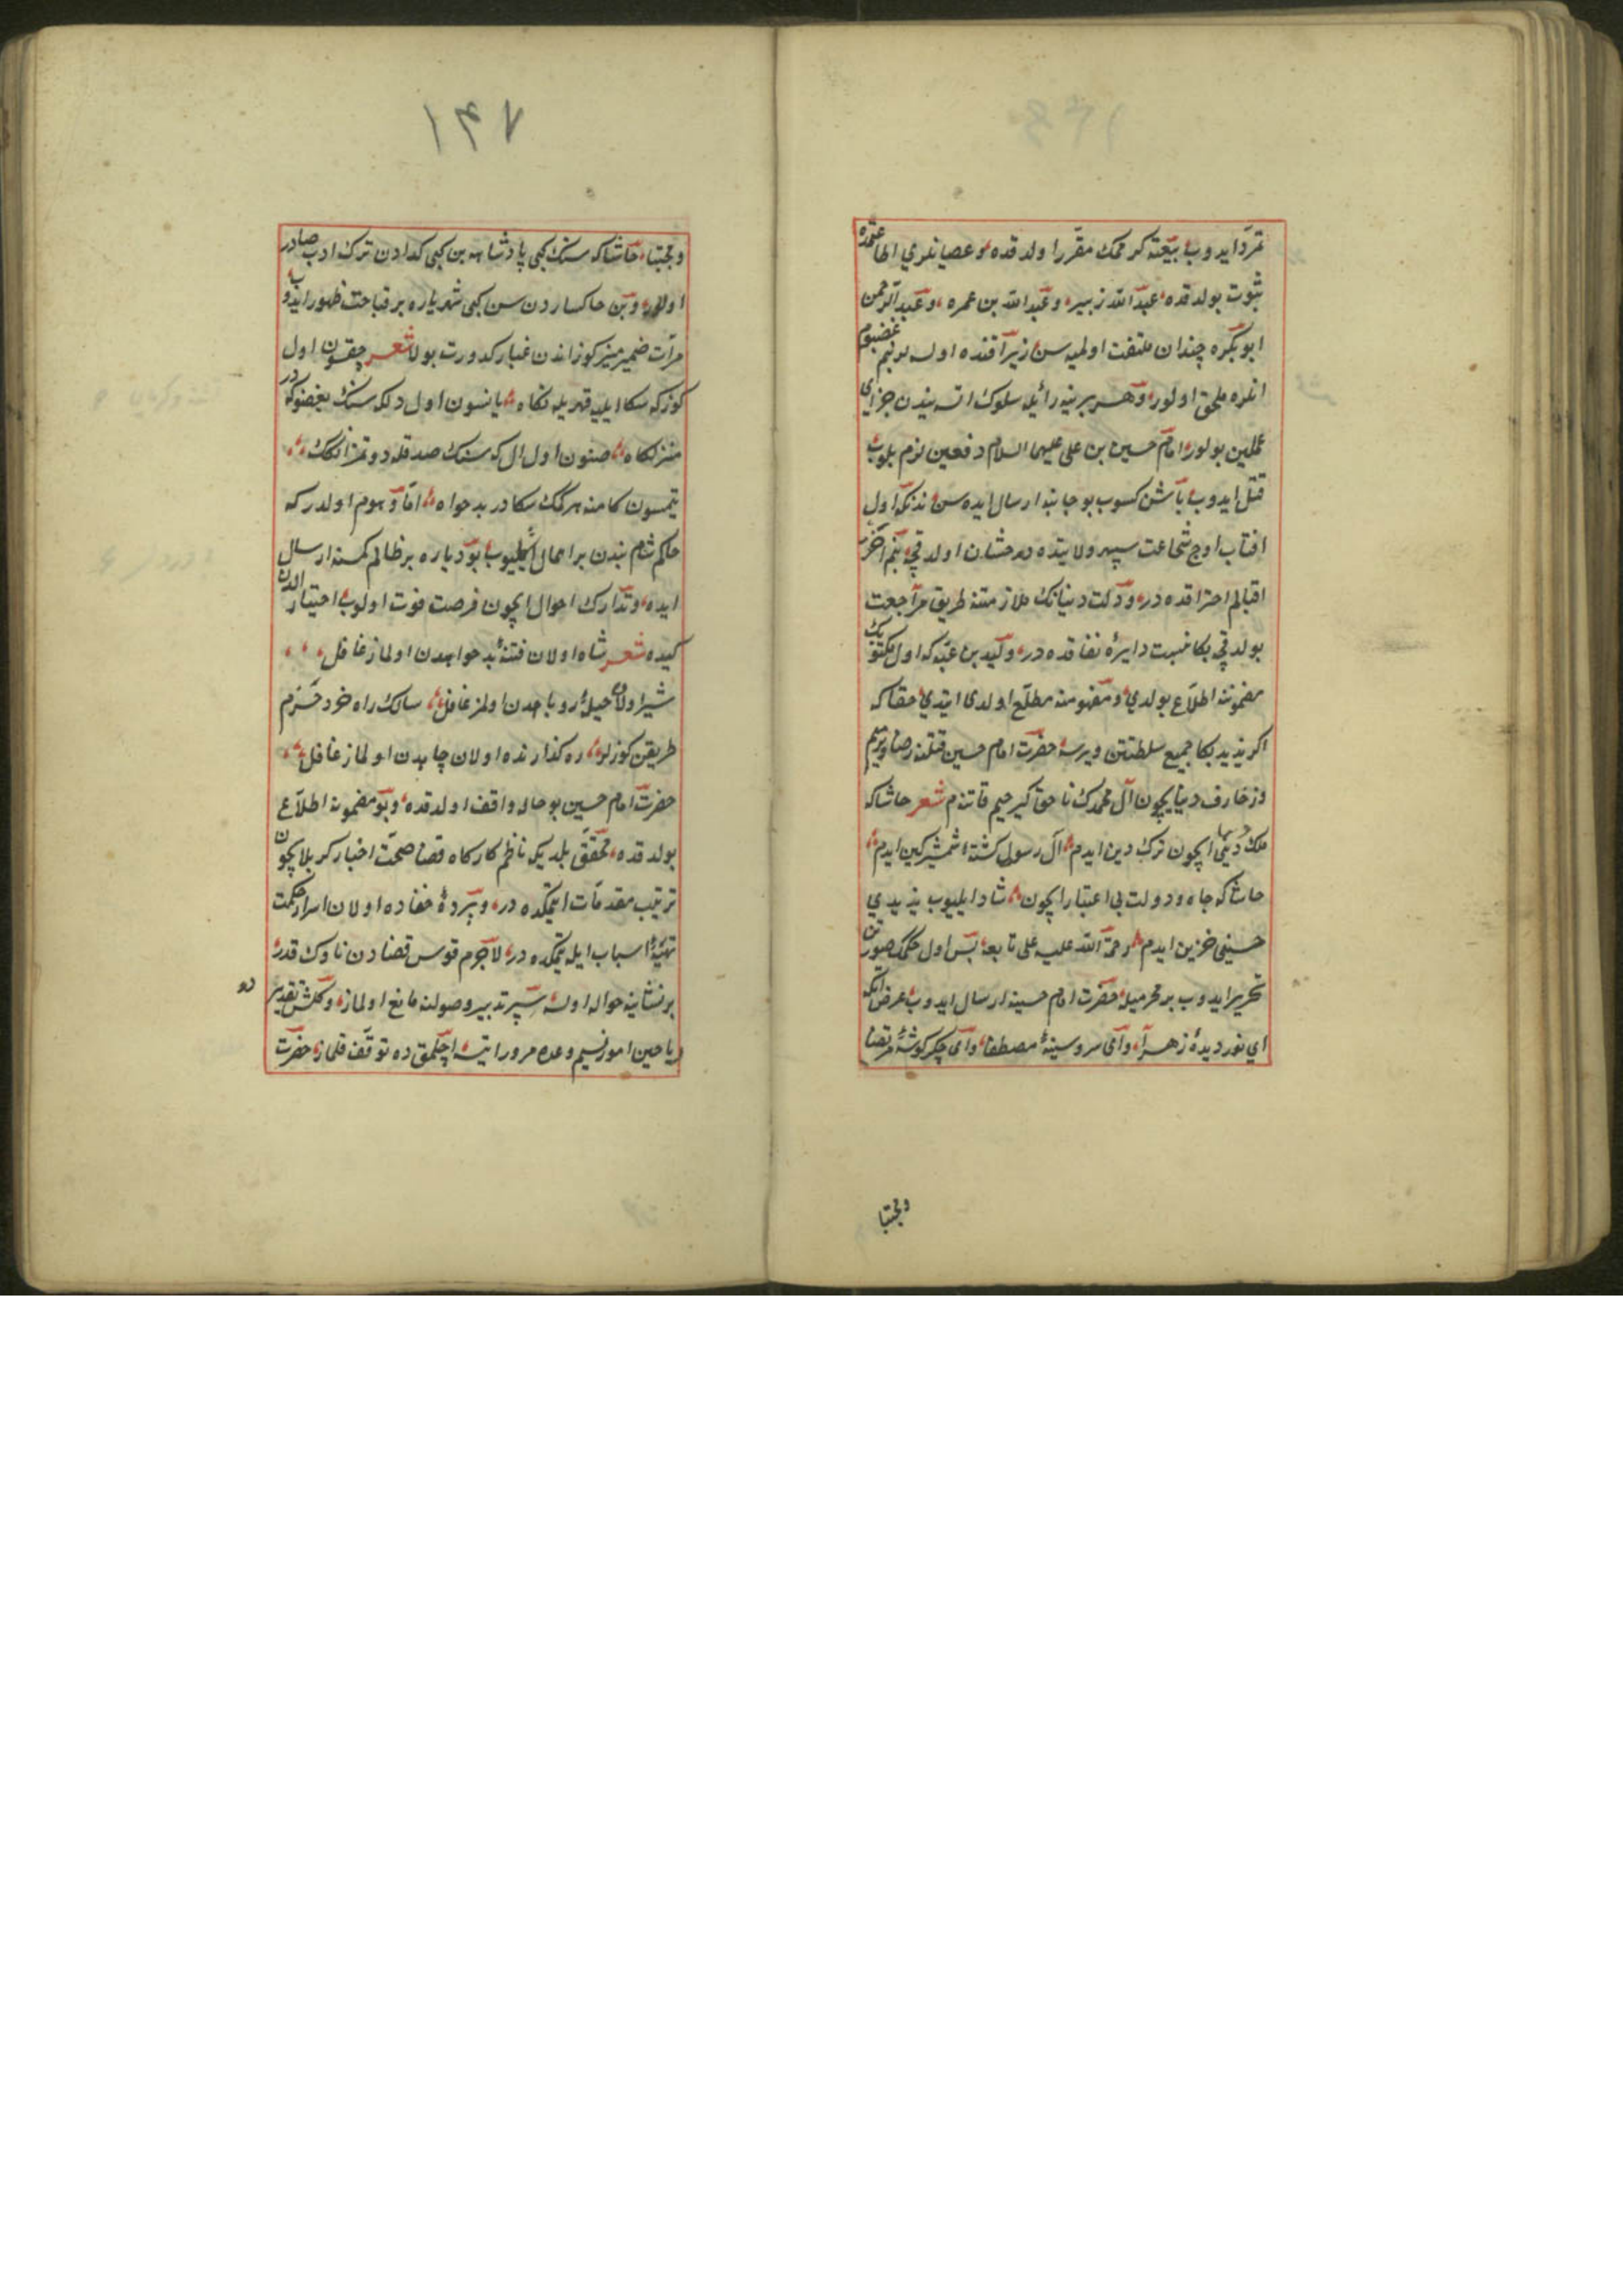 تمرّد ایدوب بیعته کرمک مقرر اولدقده و عصیانلری اطاعتمده
ثبوت بولدقده عبدالله زبیره و عبدالله بن عمره و عبدالرحمن
ابوبکره چندان ملتفت اولمیه سن زیرا قنده اولسه لر بنم غضبوم
انلره ملحق اولور و هر بر نیه رائیله سلوک اتسه بندن جزای
عملین بولور امام حسین بن علی علیهما السلام دفعین لازم بلوب
قتل ایدوب باشن کسوب بو جانبه ارسال ایده سن نذنکه اول
افتاب اوج شجاعت سپهر ولایتده درخشان اولدقچه بنم اختر
اقبالم احتراقده در و دولت دنیانک ملازمتنه طریق مراجعت
بولدقچه بکا نسبت دایرهٔ نفاقده در ولید بن عتبه که اول مکتوبک
مضموننه اطلاع بولدی و مفهومنه مطلع اولدی ایتدی حقا که
اکر یزید بکا جمیع سلطنتن ویرسه حضرت امام حسین قتلنه رضا ویرمیم
وزخارف دنیا ایچون آل محمدک ناحق کیرحیم قاتنه م شعر حاشا که
ملک دنیی ایچون ترک دین ایدم آل رسول کشتهٔ شمشیر کین ایدم
حاشا که جاه و دولت بی اعتبار ایچون شاد ایلیوب یزیدی
حسینی حزین ایدم رحمة الله علیه علی تابعه پس اول حکمک صورتن
تحریر ایدوب بر محرمیله حضرت امام حسینه ارسال ایدوب عرض اتدکه
ای نور دیدهٔ زهرا و آی سرو سینهٔ مصطفا و آی جگر کوشهٔ مرتضا
و مجتبا
١٤٧
و مجتبا حاشا که سنک کبی پادشاهه بن کبی کدادن ترک ادب صادر
اولور و بن خاکساردن سن کبی شهریاره بر قباحت ظهور ایدوب
مرآت ضمیر منیرکوز اندن غبار کدورت بولا شعر چقسون اول
کوز که سکا ایلیه قهریله نکاه یانسون اول دل که سنک بغضوکه در
منزلکاه صنون اول ال که سنک صدقله دوتمز اتکک
یتمسون کامنه هر کک سکا در بدخواه اما وهوم اولدر که
حاکم شام بندن بر اهمال اکلیوب بو دیاره بر ظالم کمسه ارسال
ایده و تدارک احوال ایچون فرصت فوت اولوب اختیار الدن
کیده شعر شاه اولان فتنهٔ بدخواهدن اولماز غافل
شیر اولان حیلهٔ روباهدن اولمز غافل سالک راه خرد حزم
طریقن کوزلر ره کذارنده اولان چاهدن اولماز غافل
حضرت امام حسین بو حاله واقف اولدقده و بو مضمونه اطلاع
بولدقده محقق بلدیکه ناظم کارکاه قضا صحت اخبار کربلا ایچون
ترتیب مقدمات ایتمکده در و پردهٔ خفاده اولان اسرار حکمت
تهیهٔ اسباب ایله یتمکده در لاجرم قوس قضادن ناوک قدر
بر نشانیه حواله اولسه سپر تدبیر وصولنه مانع اولماز و کلشن تقدیرده
ریاحین امور نسیم وعده مرور ایتسه اچلمقده توقف قلماز حضرت